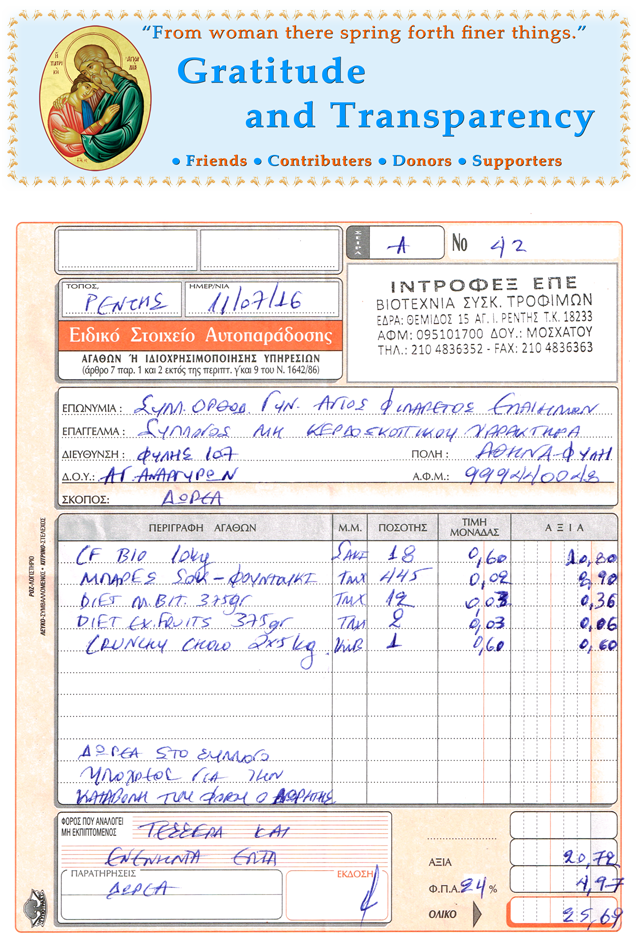 “From woman there spring forth finer things.”
Gratitude
and Transparency
• Friends • Contributers • Donors • Supporters
ΣΕΙΡΑ Α No 42
ΤΟΠΟΣ, ΡΕΝΤΗΣ ΗΜΕΡ/ΝΙΑ 11/07/16
Ειδικό Στοιχείο Αυτοπαράδοσης
ΑΓΑΘΩΝ Ή ΙΔΙΟΧΡΗΣΙΜΟΠΟΙΗΣΗΣ ΥΠΗΡΕΣΙΩΝ
(άρθρο 7 παρ. 1 και 2 εκτός της περιπτ. γ' και 9 του Ν. 1642/86)
ΙΝΤΡΟΦΕΞ ΕΠΕ
ΒΙΟΤΕΧΝΙΑ ΣΥΣΚ. ΤΡΟΦΙΜΩΝ
ΕΔΡΑ: ΘΕΜΙΔΟΣ 15 ΑΓ. Ι. ΡΕΝΤΗΣ Τ.Κ. 18233
ΑΦΜ: 095101700 ΔΟΥ.: ΜΟΣΧΑΤΟΥ
ΤΗΛ.: 210 4836352 - FAX: 210 4836363
ΕΠΩΝΥΜΙΑ : ΣΥΛΛ. ΟΡΘΟΔ. ΓΥΝ. ΑΓΙΟΣ ΦΙΛΑΡΕΤΟΣ
ΕΠΑΓΓΕΛΜΑ : ΣΥΛΛΟΓΟΣ ΜΗ ΚΕΡΔΟΣΚΟΠΙΚΟΥ ΧΑΡΑΚΤΗΡΑ
ΔΙΕΥΘΥΝΣΗ : ΦΥΛΗΣ 107 ΠΟΛΗ : ΑΘΗΝΑ - ΦΥΛΗ
Δ.Ο.Υ.: ΑΓ. ΑΝΑΡΓΥΡΩΝ Α.Φ.Μ.:
ΣΚΟΠΟΣ: ΔΩΡΕΑ
ΠΕΡΙΓΡΑΦΗ ΑΓΑΘΩΝ Μ.Μ. ΠΟΣΟΤΗΣ ΤΙΜΗ ΜΟΝΑΔΑΣ ΑΞΙΑ
CF BIO 10kg 18 0,60 10,80
ΜΠΑΡΕΣ ΣΟΚ - ΦΟΥΝΤΟΥΚΙ ΤΜΧ 445 0,02 8,90
DIET M. BIT. 375gr ΤΜΧ 12 0,03 0,36
DIET EX. FRUITS 375gr ΤΜΧ 2 0,03 0,06
CRUNCHY CHOCO 2x5kg ΚΙΒ 1 0,60 0,60
ΔΩΡΕΑ ΣΤΟ ΣΥΛΛΟΓΟ
ΥΠΟΧΡΕΟΣ ΓΙΑ ΤΗΝ
ΚΑΤΑΒΟΛΗ ΤΟΥ ΦΟΡΟΥ Ο ΔΩΡΗΤΗΣ
ΦΟΡΟΣ ΠΟΥ ΑΝΑΛΟΓΕΙ
ΜΗ ΕΚΠΙΠΤΟΜΕΝΟΣ ΤΕΣΣΕΡΑ ΚΑΙ
ΕΝΕΝΗΝΤΑ ΕΠΤΑ
ΠΑΡΑΤΗΡΗΣΕΙΣ
ΔΩΡΕΑ
ΕΚΔΟΣΗ
ΑΞΙΑ 20,72
Φ.Π.Α. 24 % 4,97
ΟΛΙΚΟ 25,69